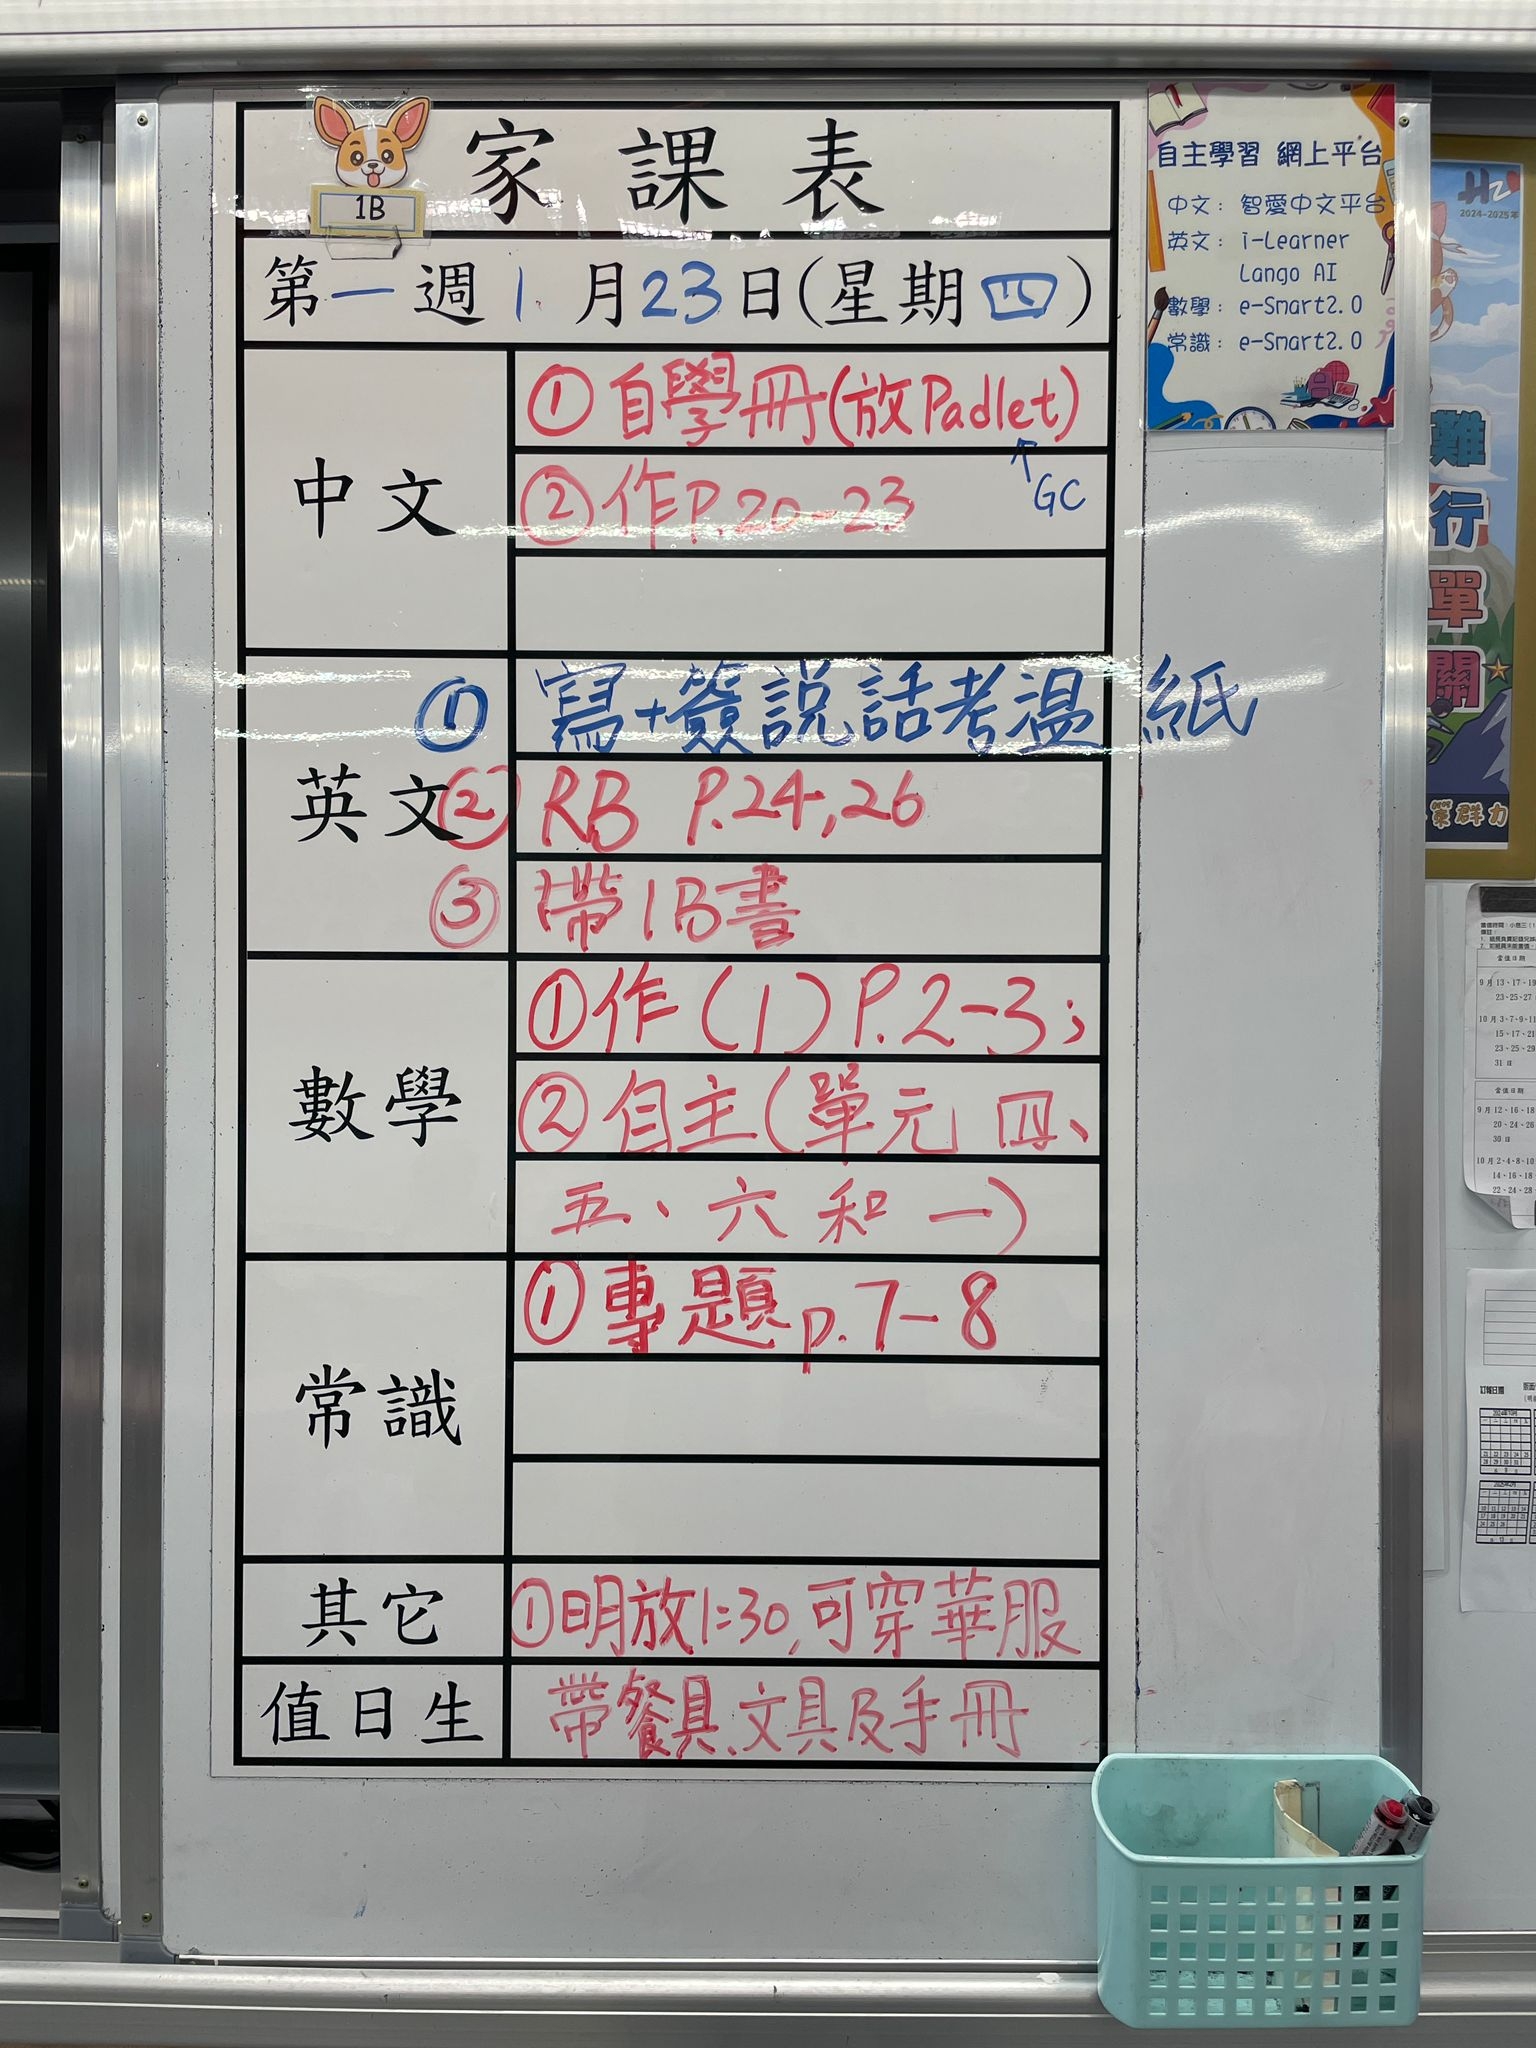 家課表
1B
第一週 1月23日(星期四)
中文
① 自學冊(放Padlet)
GC
② 作P.20-23
英文
① 寫+簽說話考溫紙
② RB P.24,26
③ 帶1B書
數學
① 作(1)P.2-3;
② 自主(單元 四、
五、六和一)
常識
① 專題 p.7-8
其它
① 明放1:30,可穿華服
值日生
帶餐具、文具及手冊
自主學習 網上平台
中文: 智愛中文平台
英文: i-Learner
Lango AI
數學: e-Smart2.0
常識: e-Smart2.0
2024-2025年
難
行
單
關
群力
當值日期
9月13、17、19
23、25、27
10月3、7、9、11
15、17、21
23、25、29
31日
當值日期
9月12、16、18
20、24、26
30日
10月2、4、8、10
14、16、18
22、24、28